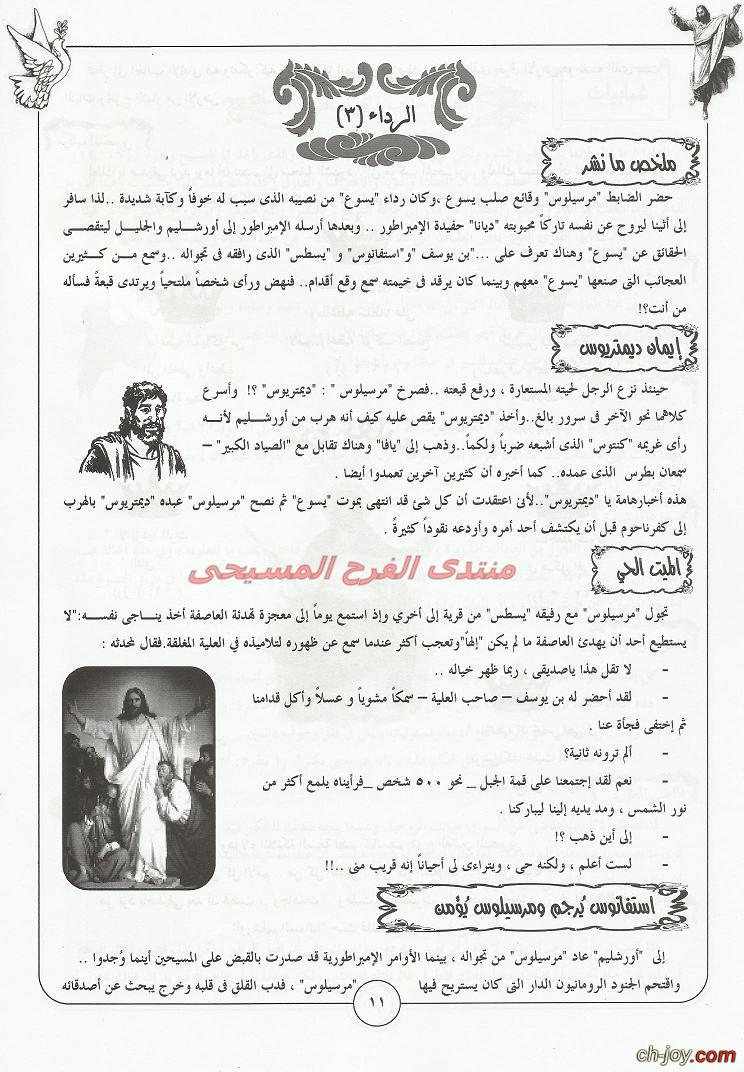 الرداء (٣)
ملخص ما نشر
حضر الضابط "مرسيلوس" وقائع صلب يسوع ،وكان رداء "يسوع" من نصيبه الذى سبب له خوفاً وكآبة شديدة ..لذا سافر
إلى أثينا ليروح عن نفسه تاركاً محبوبته "ديانا" حفيدة الإمبراطور .. وبعدها أرسله الإمبراطور إلى أورشليم والجليل ليتقصى
الحقائق عن "يسوع" وهناك تعرف على ..."بن يوسف "و"استفانوس" و "يسطس" الذى رافقه فى تجواله ..وسمع مـن كـثيرين
العجائب التى صنعها "يسوع" معهم وبينما كان يرقد فى خيمته سمع وقع أقدام..فنهض ورأى شخصاً ملتحياً ويرتدى قبعةً فسأله
من أنت؟!
إيمان ديمتريوس
حينئذ نزع الرجل لحيته المستعارة ، ورفع قبعته ..فصرخ "مرسيلوس" : "ديمتريوس" ؟! وأسرع
كلاهما نحو الآخر فى سرور بالغ..وأخذ "ديمتريوس" يقص عليه كيف أنه هرب من أورشـليم لأنـه
رأى غريمه "كنتوس" الذى أشبعه ضرباً ولكماً..وذهب إلى "يافا" وهناك تقابل مع "الصياد الكبير" –
سمعان بطرس الذى عمده.. كما أخبره أن كثيرين آخرين تعمدوا أيضا .
هذه أخبارهامة يا "ديمتريوس"..لأنى اعتقدت أن كل شئ قد انتهى بموت "يسوع" ثم نصح "مرسيلوس" عبده "ديمتريوس" بالهرب
إلى كفرناحوم قبل أن يكتشف أحد أمره وأودعه نقوداً كثيرةً .
منتدى الفرح المسيحى
الميت الحي
تجول "مرسيلوس" مع رفيقه "يسطس" من قرية إلى أخري وإذ استمع يوماً إلى معجزة تهدئة العاصفة أخذ يناجى نفسـه:"لا
يستطيع أحد أن يهدئ العاصفة ما لم يكن "إلهاً"وتعجب أكثر عندما سمع عن ظهوره لتلاميذه في العلية المغلقة.فقال لمحدثه :
- لا تقل هذا ياصديقى ، ربما ظهر خياله ..
- لقد أحضر له بن يوسف – صاحب العلية – سمكاً مشوياً و عسلاً وأكل قدامنا
ثم إختفى فجأة عنا .
- ألم ترونه ثانية؟
- نعم لقد إجتمعنا على قمة الجبل _ نحو ٥٠٠ شخص _فرأيناه يلمع أكثر من
نور الشمس ، ومد يديه إلينا ليباركنا .
- إلى أين ذهب ؟!
- لست أعلم ، ولكنه حى ، ويتراءى لى أحياناً إنه قريب منى ..!!
استفانوس يُرجم ومرسيلوس يُؤمن
إلى "أورشليم" عاد "مرسيلوس" من تجواله ، بينما الأوامر الإمبراطورية قد صدرت بالقبض على المسيحين أينما وُجدوا ..
واقتحم الجنود الرومانيون الدار التى كان يستريح فيها "مرسيلوس" ، فدب القلق فى قلبه وخرج يبحث عن أصدقائه
١١
ch-joy.com